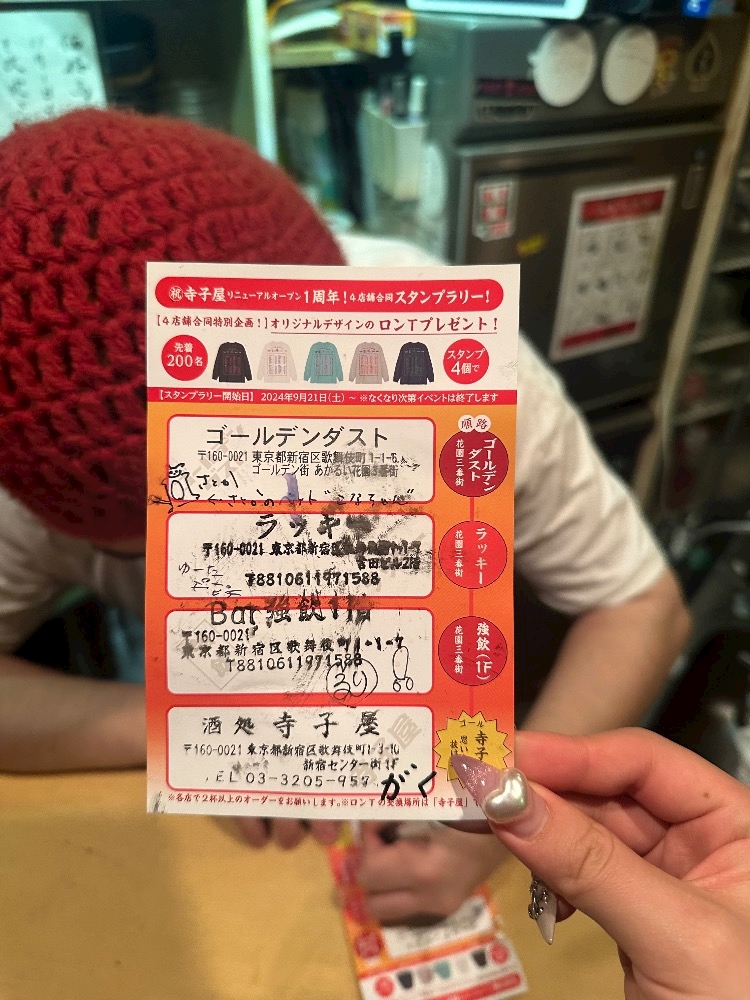 祝 寺子屋リニューアルオープン1周年！4店舗合同スタンプラリー！
【4店舗合同特別企画！】オリジナルデザインのロンTプレゼント！
先着
200名
スタンプ
4個で
【スタンプラリー開始日】 2024年9月21日(土) ～ ※なくなり次第イベントは終了します
順路
ゴールデンダスト
〒160-0021 東京都新宿区歌舞伎町 1-1-6
ゴールデン街 あかるい花園3番街
さとか
ゴールデン
ダスト
花園三番街
ラッキー
〒160-0021 東京都新宿区
吉田ビル2階
T8810611971588
ゆーた
ラッキー
花園三番街
Bar 強飲
〒160-0021
東京都新宿区歌舞伎町1-1-7
T8810611971588
るり
強飲(1F)
花園三番街
酒処 寺子屋
〒160-0021 東京都新宿区歌舞伎町1-3-10
新宿センター街 1F
TEL 03-3205-957
がく
ゴール
寺子
思い
※各店で2杯以上のオーダーをお願いします。※ロンTの交換場所は「寺子屋」で